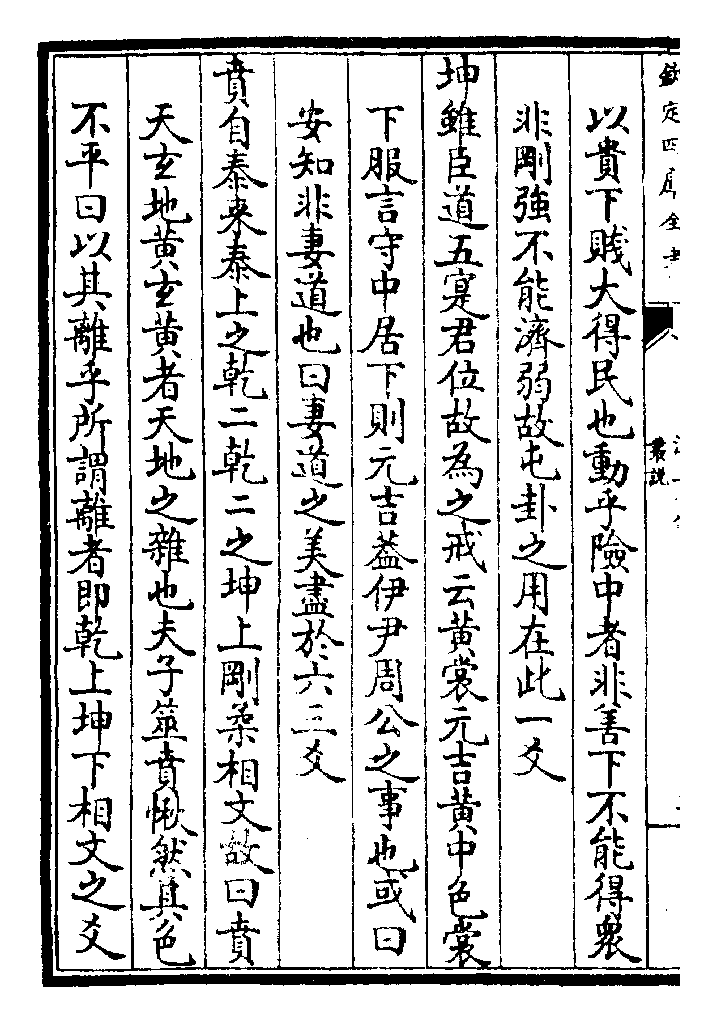 欽定四庫全書
叢說
以貴下賤大得民也動乎險中者非善下不能得衆
非剛強不能濟弱故屯卦之用在此一爻
坤雖臣道五寔君位故為之戒云黄裳元吉黄中色裳
下服言守中居下則元吉葢伊尹周公之事也或曰
安知非妻道也曰妻道之美盡於六三爻
賁自泰來泰上之乾二乾二之坤上剛柔相文故曰賁
天玄地黄玄黄者天地之雜也夫子筮賁愀然其色
不平曰以其離乎所謂離者即乾上坤下相文之爻